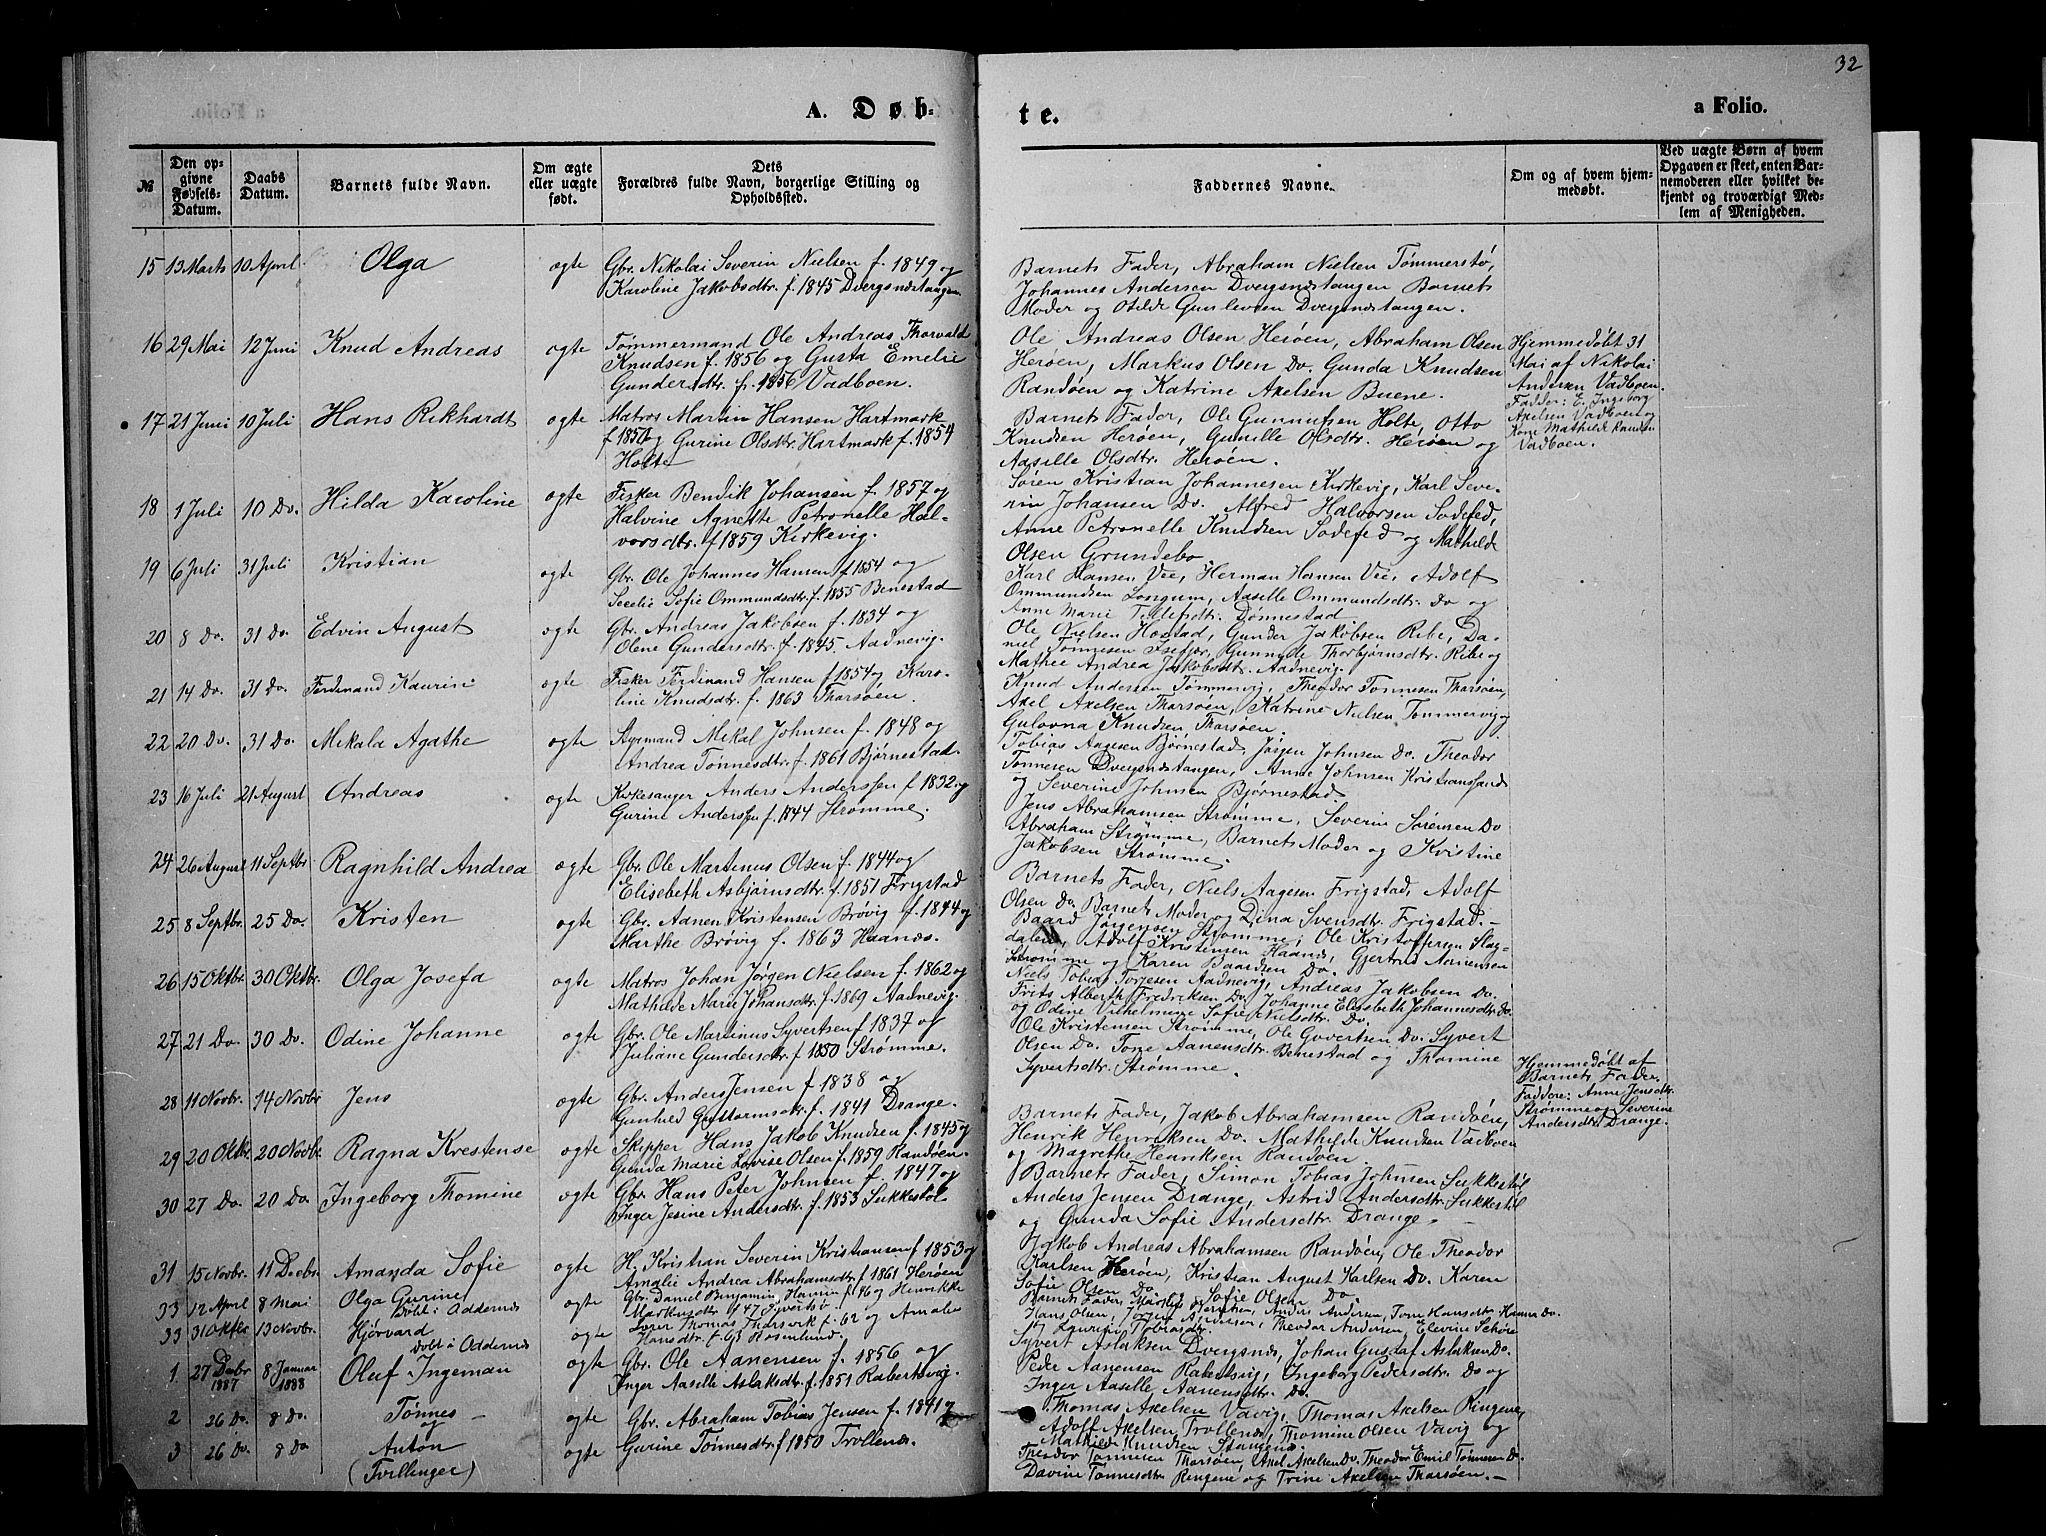 32
A. Døb-
te.
a Folio.
№
Den opgivne Fødsels-Datum.
Daabs Datum.
Barnets fulde Navn.
Om ægte eller uægte født.
Dets Forældres fulde Navn, borgerlige Stilling og Opholdssted.
Faddernes Navne.
Om og af hvem hjemmedøbt.
Ved uægte Børn af hvem Opgaven er skeet, enten Barnemoderen eller hvilket bekjendt og troværdigt Medlem af Menigheden.
15 13 Marts 10 April Olga ogte Gbr. Nikolai Severin Nielsen f. 1849 og
Karoline Jakobsdtr. f. 1845 Dvergsnestangen.
Barnets Fader, Abraham Nielsen Tømmerstø,
Johannes Andersen Dvergsnestangen Barnets
Moder og Otilde Gunlevsen Dvergsnestangen.
16 29 Mai 12 Juni Knud Andreas ogte Tømmermand Ole Andreas Thorvald
Knudsen f. 1856 og Gusta Emelie
Gundersdtr. f. 1856 Vadboen.
Ole Andreas Olsen Herøen, Abraham Olsen
Herøen, Markus Olsen Do. Gunda Knudsen
Randøen og Katrine Axelsen Buene.
Hjemmedøbt 31
Mai af Nikolai
Andersen Vadboen.
Fadder: E. Ingeborg
Axelsen Vadboen og
Kone Mathilde Knudsen
Vadboen.
17 21 Juni 10 Juli Hans Rikhardt ogte Matros Martin Hansen Hartmark
f 1850 og Gurine Olsdtr. Hartmark f. 1854
Holte
Barnets Fader, Ole Gunnufsen Holte, Otto
Knudsen Herøen, Gunille Olsdtr. Herøen og
Aasille Olsdtr. Herøen.
18 1 Juli 10 Do. Hilda Karoline ogte Fisker Bendik Johansen f. 1857 og
Halvine Agnette Petronelle Hal-
vorsdtr. f 1859 Kirkevig.
Søren Kristian Johannesen Kirkevig, Karl Seve-
rin Johansen Do. Alfred Halvorsen Sodefed,
Anne Petronelle Knudsen Sodefed og Mathilde
Olsen Grundebo
19 6 Juli 31 Juli Kristian ogte Gbr. Ole Johannes Hansen f 1854 og
Secelie Sofie Ommundsdtr. f. 1855 Benestad
Karl Hansen Vee, Herman Hansen Vee, Adolf
Ommundsen Longum, Aasille Ommundsdtr. Do og
Anne Marie Tellefsdtr. Dønnestad
20 8 Do. 31 Do. Edvin August ogte Gbr. Andreas Jakobsen f. 1834 og
Olene Gundersdtr. f. 1845. Aadnevig.
Ole Nielsen Hostad, Gunder Jakobsen Ribe, Da-
niel Tønnesen Isefjær, Gunnild Thorbjørnsdtr. Ribe og
Mathee Andrea Jakobsdtr. Aadnevig.
21 14 Do. 31 Do. Ferdinand Kaurin ogte Fisker Ferdinand Hansen f 1854 og Karo-
line Knudsdtr. f. 1863 Tharsøen.
Knud Andersen Tømmervig, Theodor Tønnesen Tharsøen,
Axel Axelsen Tharsøen, Katrine Nielsen Tømmervig og
Gulovna Knudsen Tharsøen.
22 20 Do. 31 Do. Mikala Agathe ogte Styrmand Mikal Johnsen f. 1848 og
Andrea Tønnesdtr. f. 1861 Bjørnestad.
Tobias Aagesen Bjørnestad, Jørgen Johnsen Do. Theodor
Tønnesen Dvergsnestangen, Anne Johnsen Kristianssand
og Severine Johnsen Bjørnestad.
23 16 Juli 21 August Andreas ogte Kirkesanger Anders Anderssen f 1832 og
Gurine Anderssen f. 1844 Strømme.
Jens Abrahamsen Strømme, Severin Sørensen Do
Abraham Strømme, Barnets Moder og Kristine
Jakobsen Strømme.
24 26 August 11 Septbr Ragnhild Andrea ogte Gbr. Ole Martinus Olsen f. 1844 og
Elisebeth Asbjørnsdtr. f. 1851 Frigstad
Barnets Fader, Niels Aagesen Frigstad, Adolf
Olsen Do. Barnets Moder og Dina Svensdtr. Frigstad.
25 8 Septbr. 25 Do. Kristen ogte Gbr. Aanen Kristensen Brøvig f. 1844 og
Marthe Brøvig f. 1863 Haanes.
Baard Jørgensen Strømme, Ole Kristoffersen Slag-
dalen, Adolf Kristensen Haanes, Gjertrud Aanensen
Strømme og Karen Baardsen Do.
26 15 Oktbr. 30 Oktbr. Olga Josefa ogte Matros Johan Jørgen Nielsen f. 1862 og
Mathilde Marie Johansdtr. f. 1869 Aadnevig.
Niels Tobias Torjesen Aadnevig, Andreas Jakobsen Do.
Frits Alberth Fredriksen Do. Johanne Elisebeth Johannesdtr. Do.
og Odine Vilhelmine Sofie Nielsdtr. Do.
27 21 Do. 30 Do. Odine Johanne ogte Gbr. Ole Martinus Syvertsen f 1837 og
Juliane Gundersdtr. f 1850 Strømme.
Ole Kristensen Strømme, Ole Govertsen Do. Syvert
Olsen Do. Tone Aanensdtr. Benestad og Thomine
Syvertsdtr. Strømme.
28 11 Novbr. 14 Novbr Jens ogte Gbr. Anders Jensen f 1838 og
Gunhild Guttormsdtr. f. 1841 Drange.
Hjemmedøbt af
Barnets Fader.
Faddere: Anne Jensdtr.
Strømme og Severine
Andersdtr. Drange.
29 20 Oktbr. 20 Novbr. Ragna Krestense ogte Skipper Hans Jakob Knudsen f. 1845 og
Gunda Marie Lovise Olsen f. 1859 Randøen.
Barnets Fader, Jakob Abrahamsen Randøen,
Henrik Henriksen Do. Mathilde Knudsen Vadboen
og Magrethe Henriksen Randøen
30 27 Do. 20 Do Ingeborg Thomine ogte Gbr. Hans Peter Johnsen f. 1847 og
Inger Jesine Andersdtr. f. 1853 Sukkestøl
Barnets Fader, Simon Tobias Johnsen Sukkestøl
Anders Jensen Drange, Astrid Andersdtr. Sukkestøl
og Gunda Sofie Andersdtr. Drange.
31 15 Novbr. 11 Decbr. Amanda Sofie ogte H. Kristian Severin Kristiansen f 1853 og
Amalie Andrea Abrahamsdtr. f 1861 Herøen
Jakob Andreas Abrahamsen Randøen, Ole Theodor
Karlsen Herøen, Kristian August Karlsen Do. Karen
Sofie Olsen Do. Sofie Olsen Do
33 12 April 8 Mai Olga Gurine
Døbt i Oddernes ogte Gbr. Daniel Benjamin Hannin f. 46 og Henrikke
Markusdtr f 47 Syvertsø.
33 31 Oktbr 13 Novbr. Hjørvard
Døbt i Oddernes ogte Thomas Tharsvik f. 62 og Amalie
Hansdtr. f. 63 Rosenlund.
1 27 Decbr 1887 8 Januar 1888 Oluf Ingeman ogte Gbr. Ole Aanensen f. 1856 og
Inger Aasille Aslaksdtr. f. 1851 Rabertsvig.
Syvert Aslaksen Dvergsnes, Johan Gustaf Aslaksen Do.
Peder Aanensen Rabertsvig, Ingeborg Pedersdtr. Do og
Inger Aasille Aanensdtr. Do.
2 26 Do. 8 Do. Tønnes
og ogte Gbr. Abraham Tobias Jensen f. 1841 og
Thomas Axelsen Vavig, Thomas Axelsen Ringene,
Adolf Axelsen Trollenes, Thomine Olsen Vavig og
Mathilde Knudsen Stangenes.
3 26 Do 8 Do Anton
(Tvillinger) ogte Gurine Tønnesdtr. f 1850 Trollenes.
Theodor Tønnesen Tharsøen, Axel Axelsen Do. Theodor Emil Tønnesen Do.
Davine Tønnesdtr Ringene og Trine Axelsen Tharsøen.